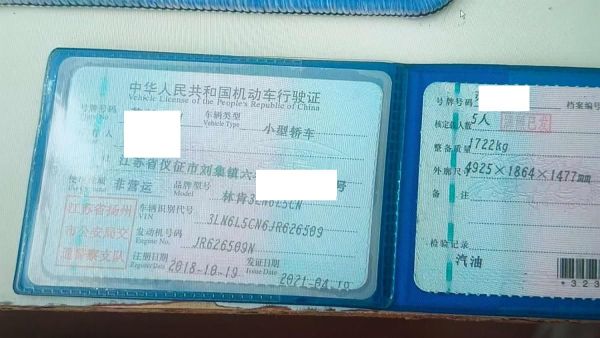 中华人民共和国机动车行驶证
Vehicle License of the People's Republic of China
号牌号码
Plate No.
车辆类型
Vehicle Type
小型轿车
人
江苏省仪征市刘集镇六
号
非营运
品牌型号
Model
林肯3LN6L5CN
车辆识别代号
VIN
3LN6L5CN6JR626509
发动机号码
Engine No.
JR626509N
注册日期
Register Date
2018-10-19
发证日期
Issue Date
2021-04-19
江苏省扬州
市公安局交
通警察支队
号牌号码
档案编号
核定载人数
5人
整备质量
1722kg
外廓尺寸
4925×1864×1477mm
备 注
检验记录
汽油